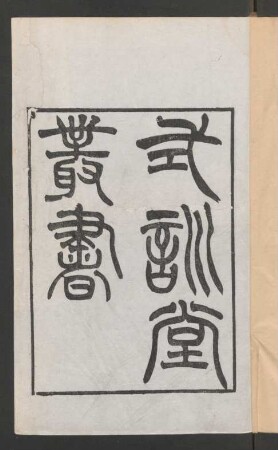 式訓堂
叢書